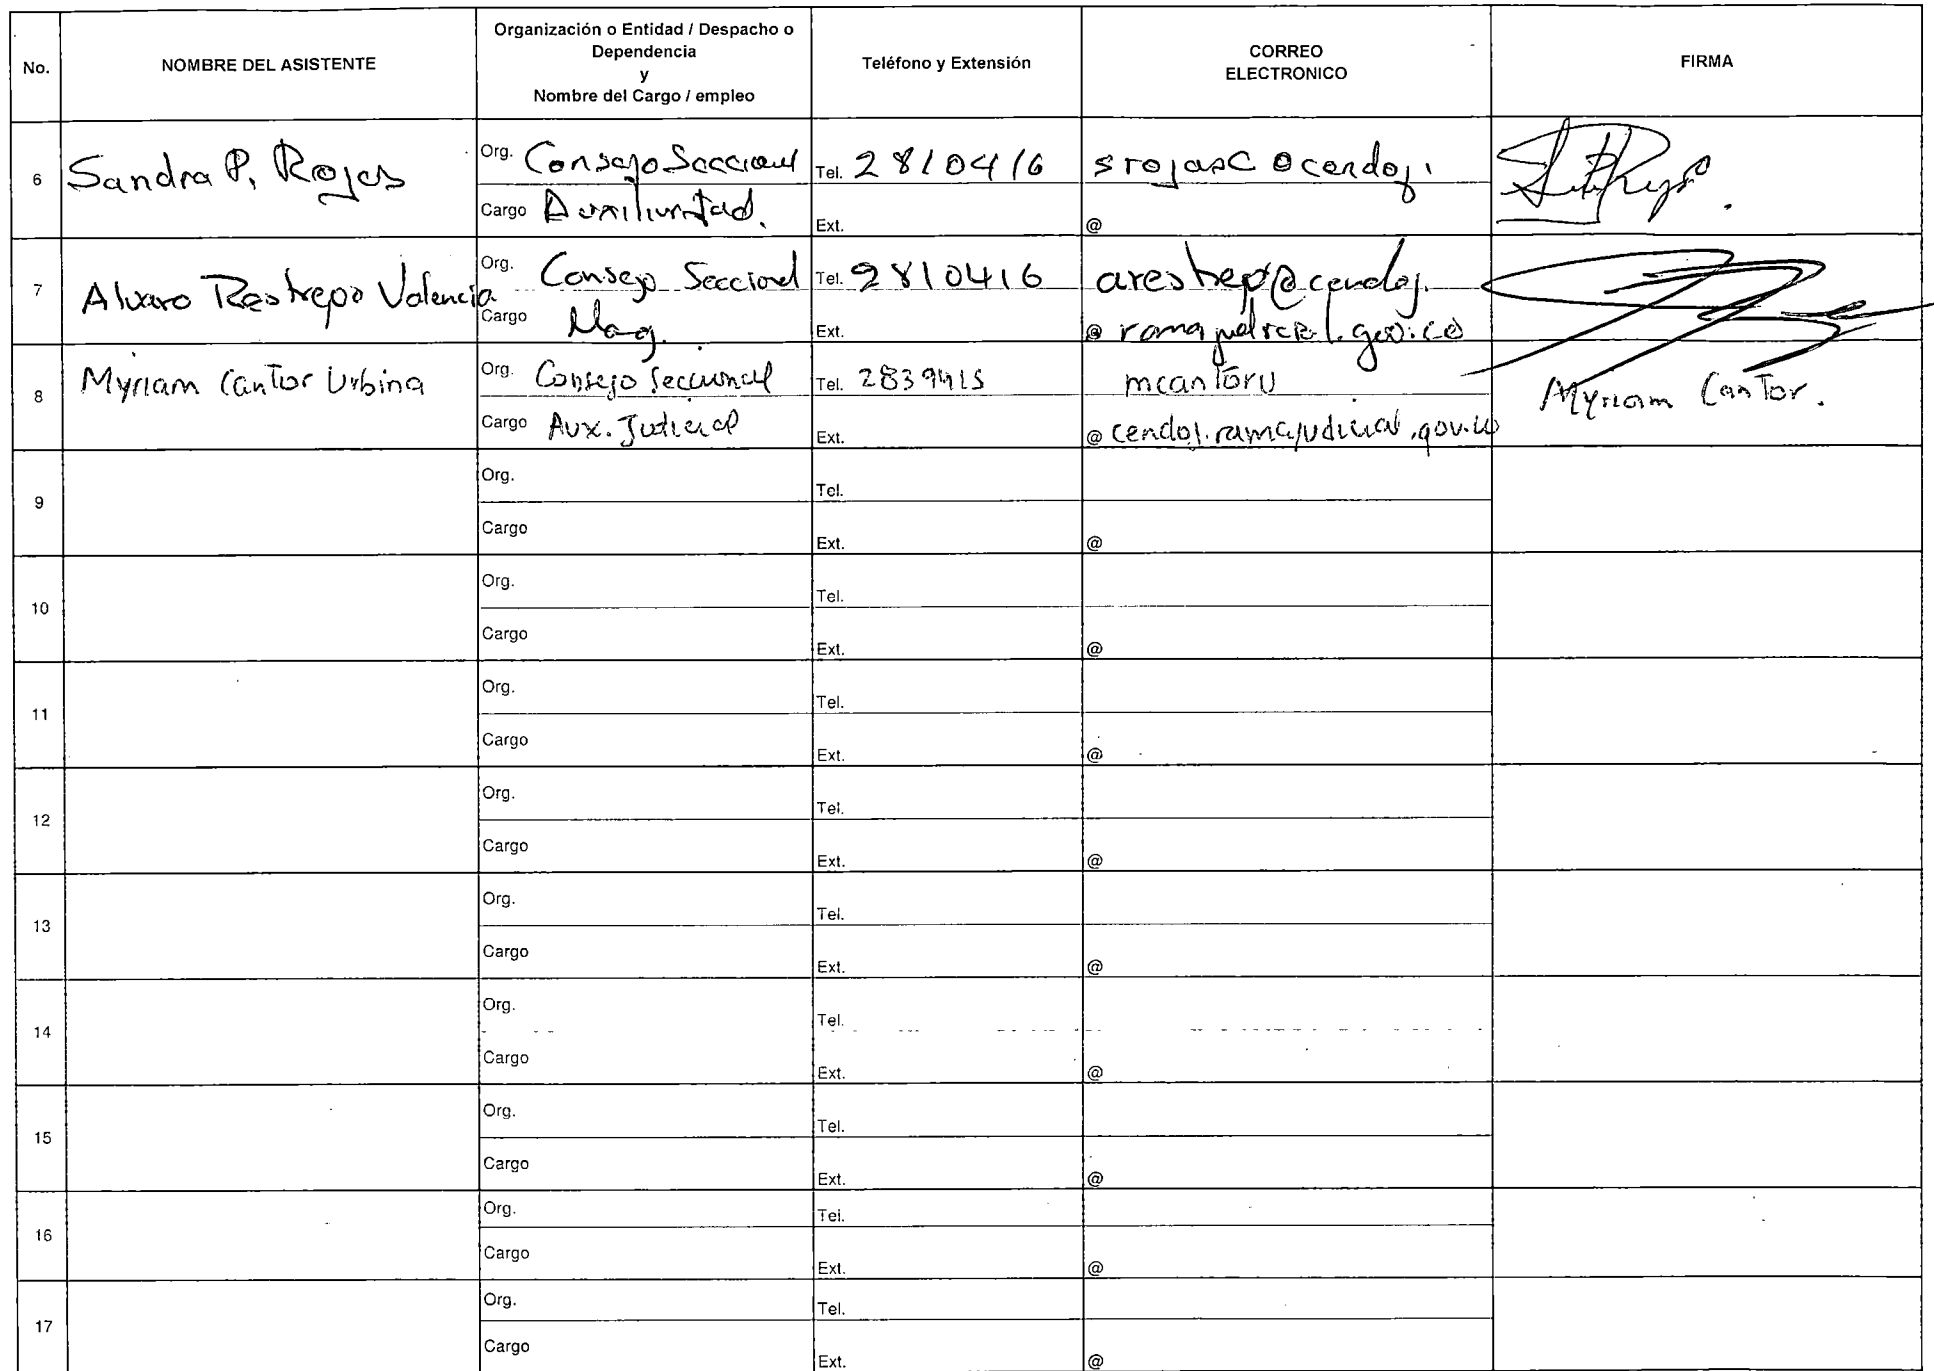 No.
NOMBRE DEL ASISTENTE
Organización o Entidad / Despacho o
Dependencia
y
Nombre del Cargo / empleo
Teléfono y Extensión
CORREO
ELECTRONICO
FIRMA
6
Sandra P. Rojas
Org. Consejo Seccional
Cargo
Tel. 2810416
Ext.
srojasc@cendoj.
@
7
Alvaro Restrepo Valencia
Org. Consejo Seccional
Cargo Mag.
Tel. 2810416
Ext.
arestrep@cendoj.
@ ramajudicial.gov.co
8
Myriam Cantor Urbina
Org. Consejo Seccional
Cargo Aux. Judicial
Tel. 2839415
Ext.
mcantoru
@ cendoj.ramajudicial.gov.co
Myriam Cantor.
9
Org.
Cargo
Tel.
Ext.
@
10
Org.
Cargo
Tel.
Ext.
@
11
Org.
Cargo
Tel.
Ext.
@
12
Org.
Cargo
Tel.
Ext.
@
13
Org.
Cargo
Tel.
Ext.
@
14
Org.
Cargo
Tel.
Ext.
@
15
Org.
Cargo
Tel.
Ext.
@
16
Org.
Cargo
Tel.
Ext.
@
17
Org.
Cargo
Tel.
Ext.
@